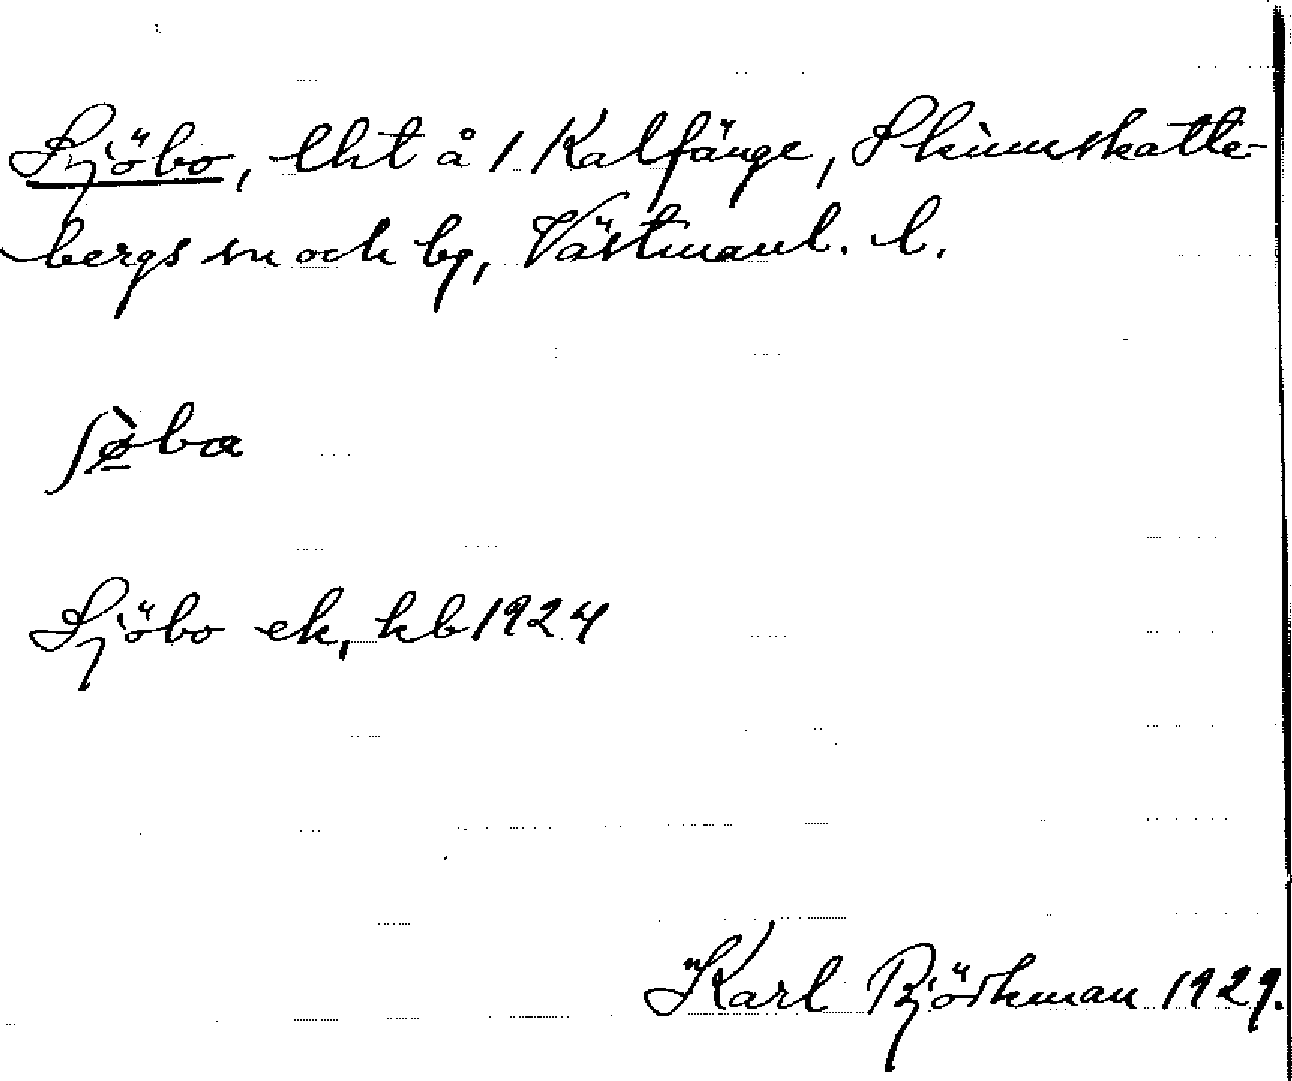 Sjöbo, lht å 1 Kalfänge, Skinnskatte-
bergs sn och bg, Västmanl. l.
ʃø̱̀ba
Sjöbo ek, kb 1924
Karl Björkman 1929.